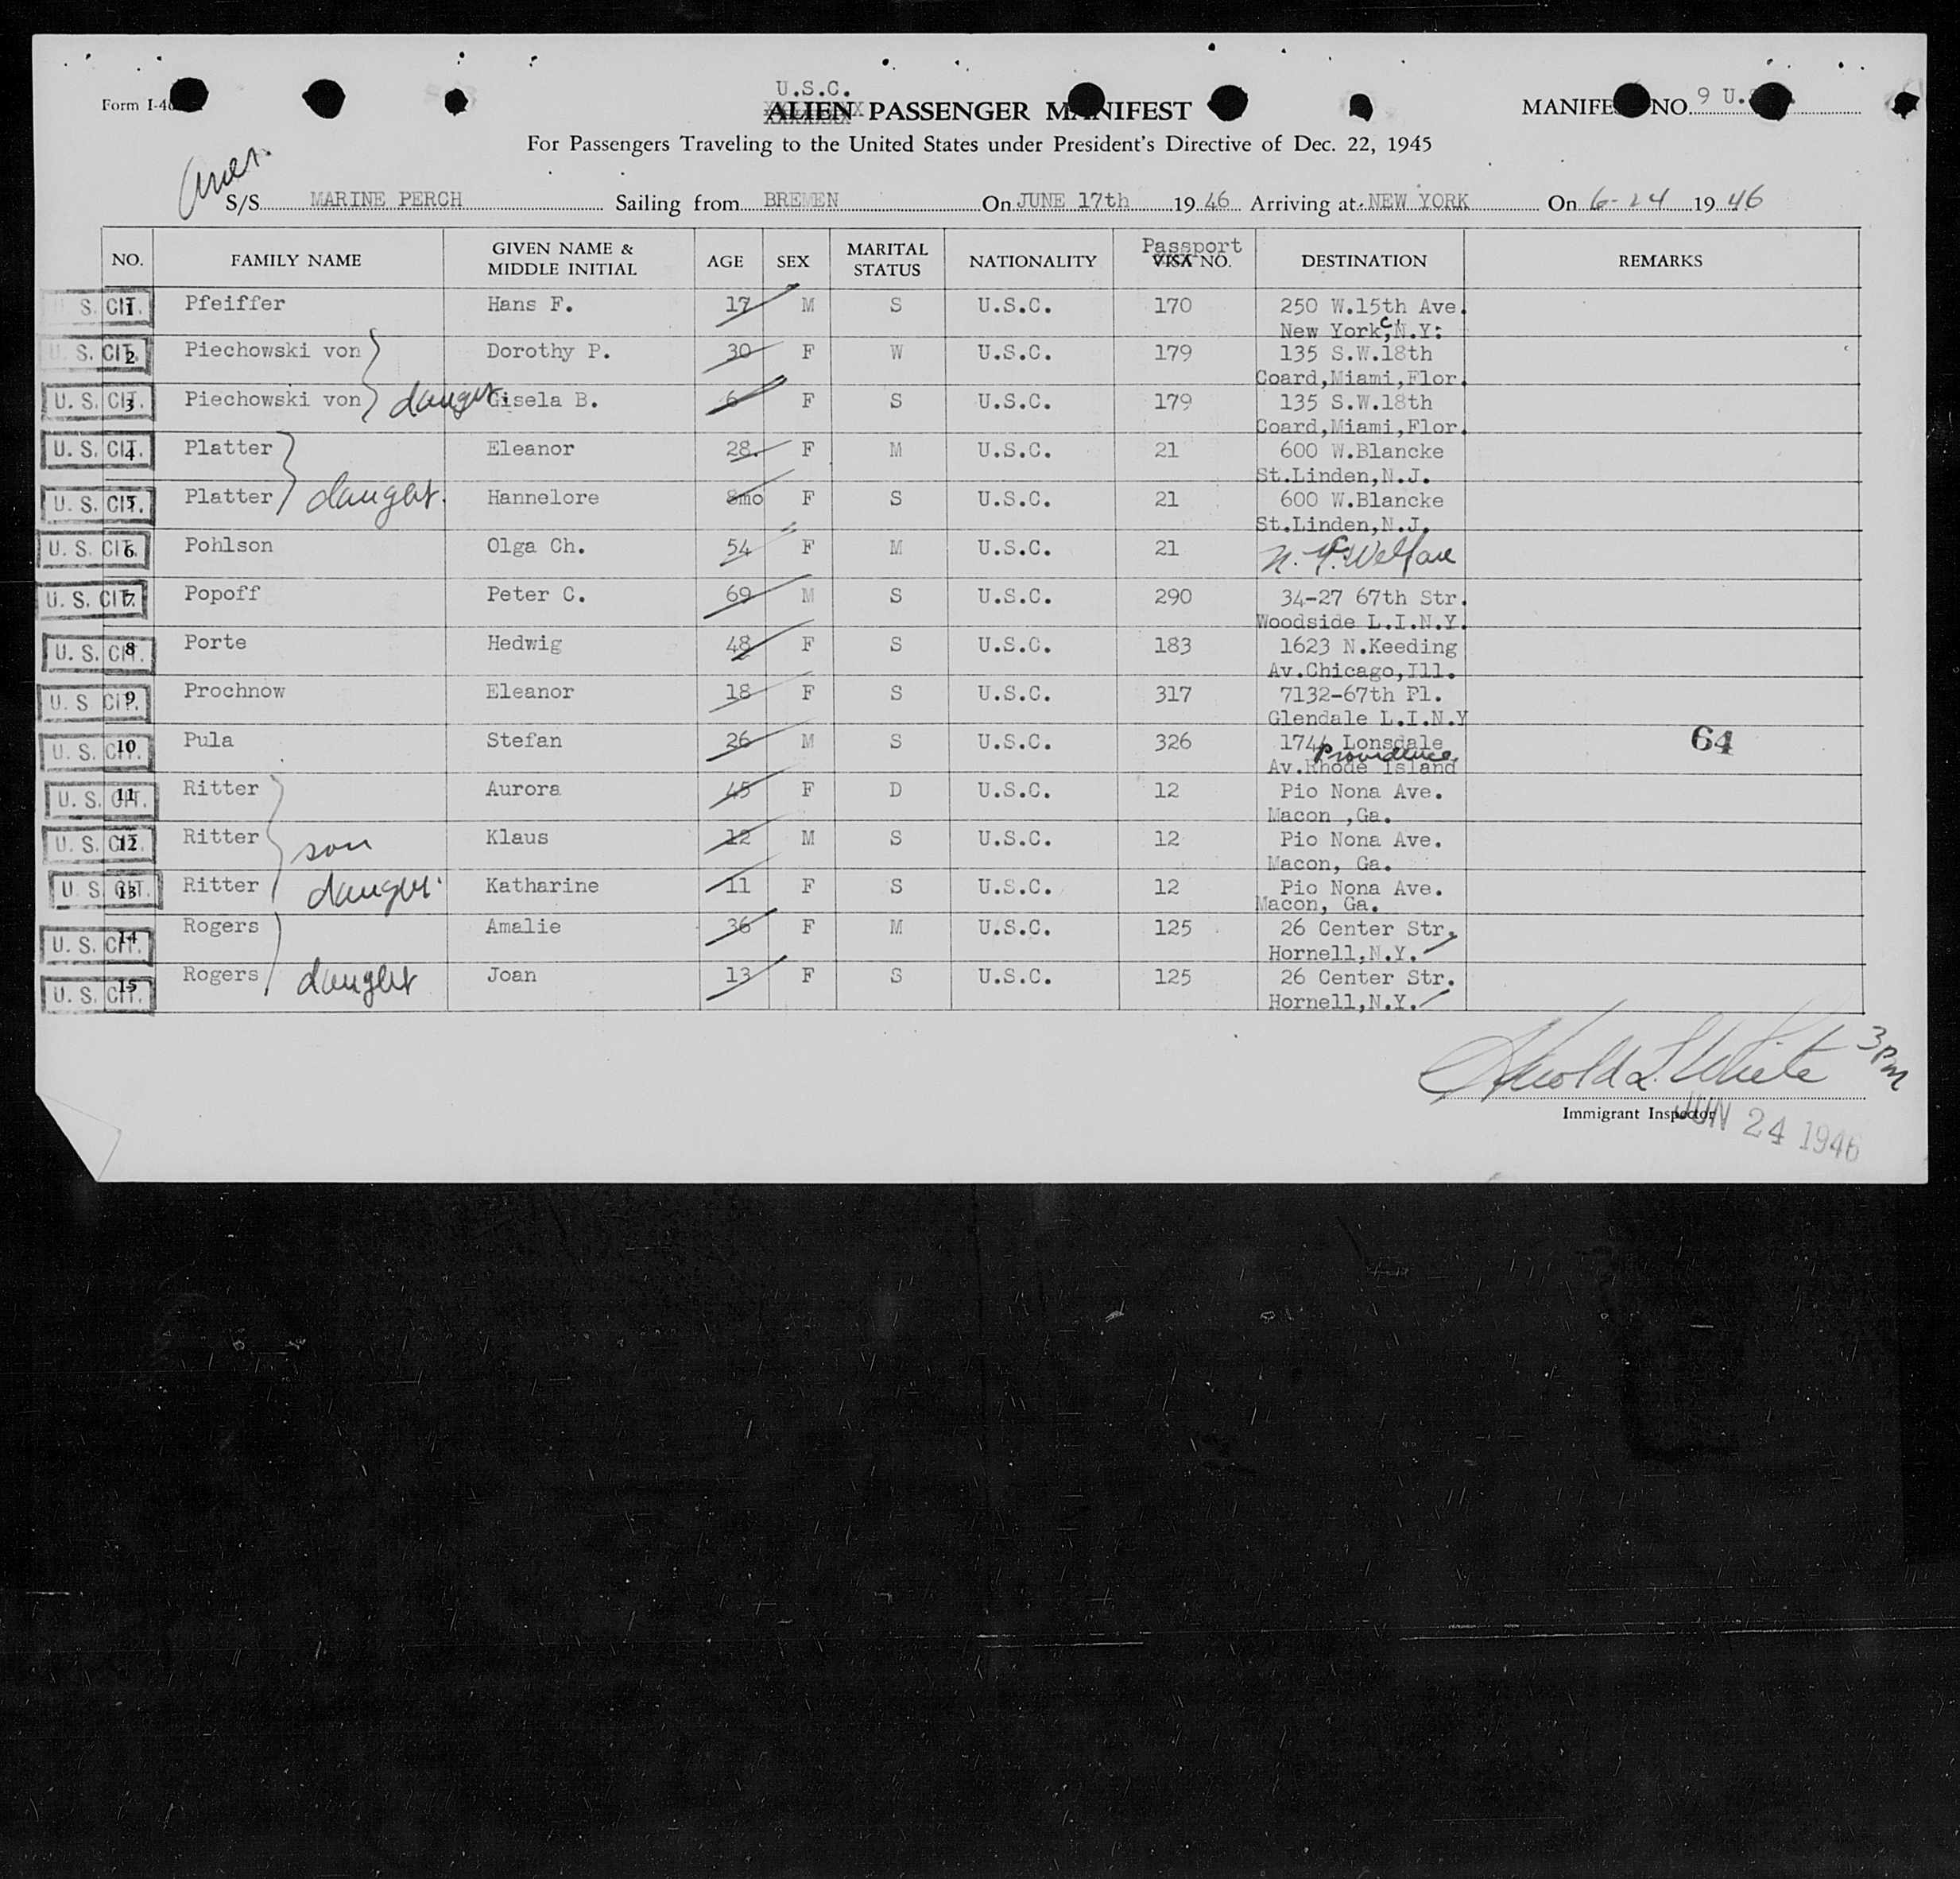 U.S.C.
Form I-4
ALIEN PASSENGER MANIFEST
MANIFEST NO. 9 U.
For Passengers Traveling to the United States under President's Directive of Dec. 22, 1945
S/S MARINE PERCH Sailing from BREMEN On JUNE 17th 19 46 Arriving at NEW YORK On 6-24 19 46
NO. FAMILY NAME GIVEN NAME & MIDDLE INITIAL AGE SEX MARITAL STATUS NATIONALITY Passport VISA NO. DESTINATION REMARKS
U. S. CIT. 1 Pfeiffer Hans F. 17 M S U.S.C. 170 250 W.15th Ave.
New York, C. N.Y:
U. S. CIT. 2 Piechowski von Dorothy P. 30 F W U.S.C. 179 135 S.W.18th
Coard,Miami,Flor.
U. S. CIT. 3 Piechowski von daught Gisela B. 6 F S U.S.C. 179 135 S.W.18th
Coard,Miami,Flor.
U. S. CIT. 4 Platter Eleanor 28 F M U.S.C. 21 600 W.Blancke
St.Linden,N.J.
U. S. CIT. 5 Platter daught. Hannelore 8mo F S U.S.C. 21 600 W.Blancke
St.Linden,N.J.
U. S. CIT. 6 Pohlson Olga Ch. 54 F M U.S.C. 21 N.Y.C. Welfare
U. S. CIT. 7 Popoff Peter C. 69 M S U.S.C. 290 34-27 67th Str.
Woodside L.I.N.Y.
U. S. CIT. 8 Porte Hedwig 48 F S U.S.C. 183 1623 N.Keeding
Av.Chicago,Ill.
U. S. CIT. 9 Prochnow Eleanor 18 F S U.S.C. 317 7132-67th Pl.
Glendale L.I.N.Y
U. S. CIT. 10 Pula Stefan 26 M S U.S.C. 326 1744 Lonsdale 64
Providence
Av.Rhode Island
U. S. CIT. 11 Ritter Aurora 45 F D U.S.C. 12 Pio Nona Ave.
Macon ,Ga.
U. S. CIT. 12 Ritter son Klaus 12 M S U.S.C. 12 Pio Nona Ave.
Macon, Ga.
U. S. CIT. 13 Ritter daught. Katharine 11 F S U.S.C. 12 Pio Nona Ave.
Macon, Ga.
U. S. CIT. 14 Rogers Amalie 36 F M U.S.C. 125 26 Center Str.
Hornell,N.Y.
U. S. CIT. 15 Rogers daught Joan 13 F S U.S.C. 125 26 Center Str.
Hornell,N.Y.
Arnold L. White 3 PM
Immigrant Inspector
JUN 24 1946